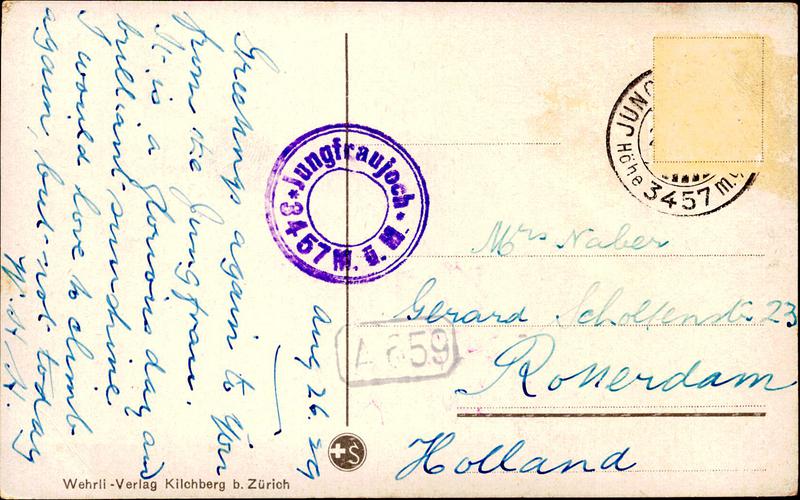 Aug 26. 29
Greetings again to you
from the Jungfrau.
It is a glorious day and
brilliant sunshine.
I would love to climb
again, but not today
W. H. H.
Jungfraujoch
3457 M. ü. M.
JUNG
Höhe 3457 m.ü
Mrs Naber
Gerard Scholtenstr 23
Rotterdam
Holland
A 659
Wehrli-Verlag Kilchberg b. Zürich